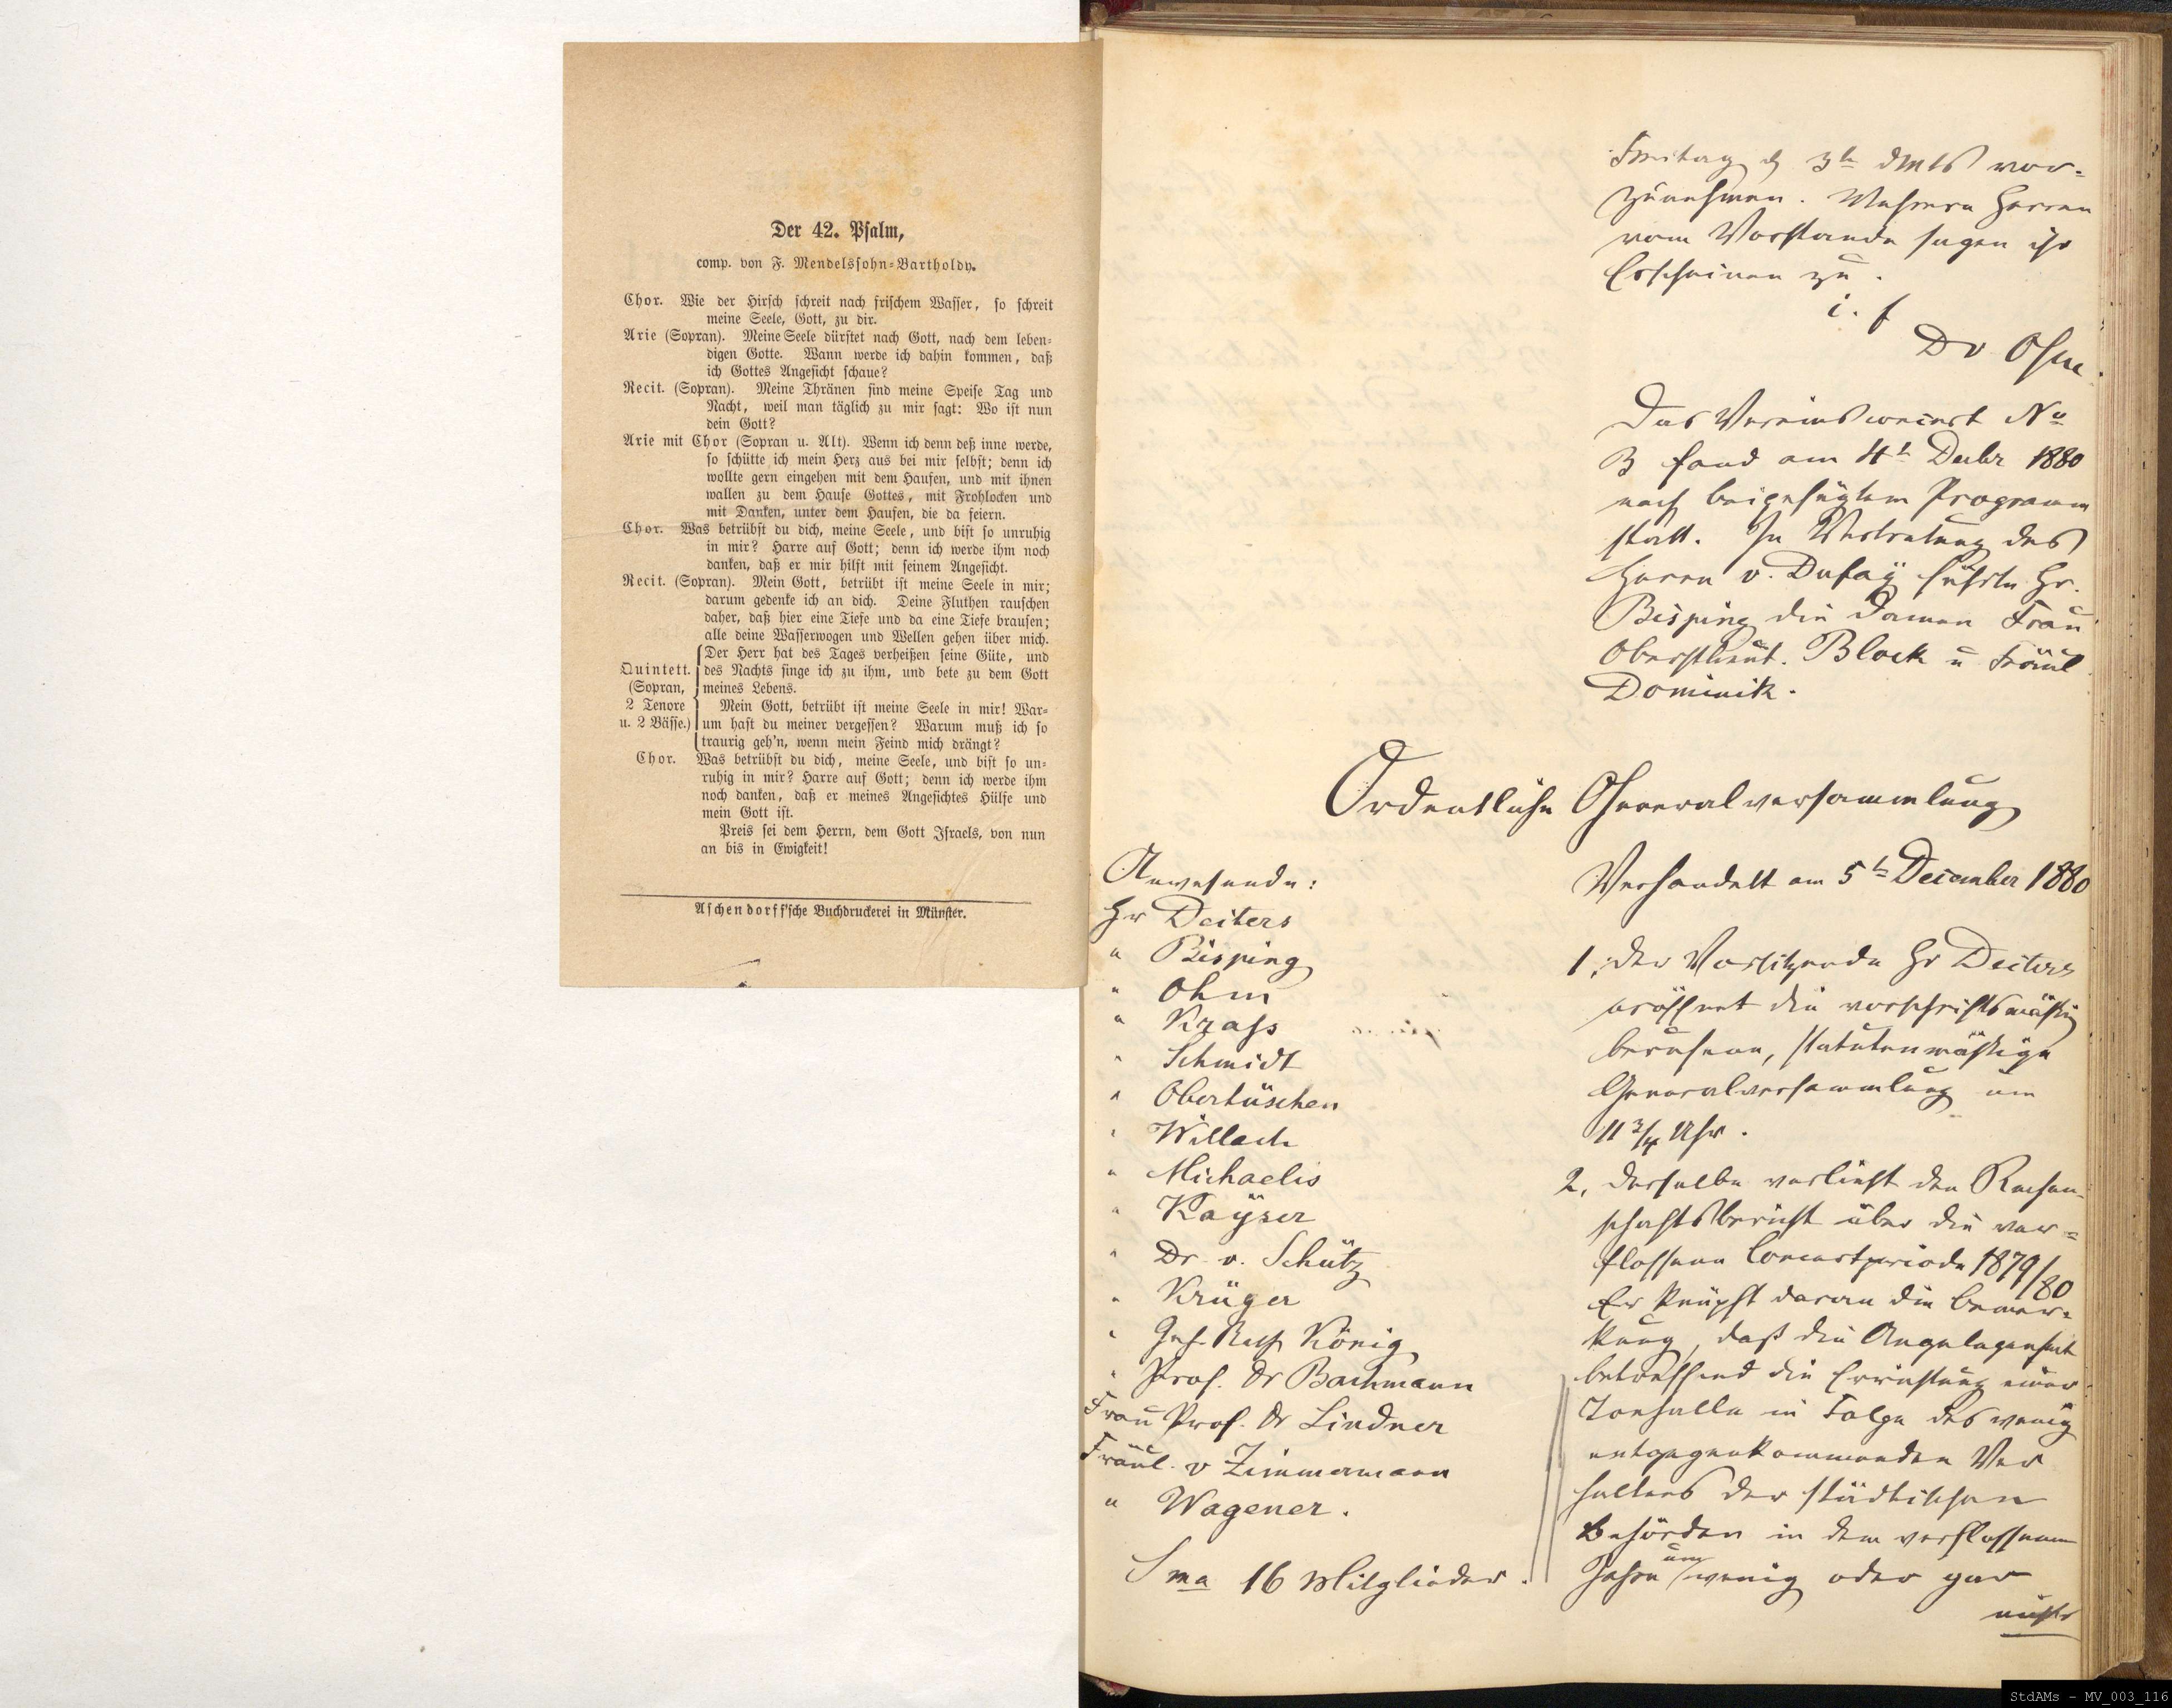 Der 42. Psalm,
comp. von F. Mendelssohn-Bartholdy.
Chor. Wie der Hirsch schreit nach frischem Wasser, so schreit
meine Seele, Gott, zu dir.
Arie (Sopran). Meine Seele dürstet nach Gott, nach dem leben-
digen Gotte. Wann werde ich dahin kommen, daß
ich Gottes Angesicht schaue?
Recit. (Sopran). Meine Thränen sind meine Speise Tag und
Nacht, weil man täglich zu mir sagt: Wo ist nun
dein Gott?
Arie mit Chor (Sopran u. Alt). Wenn ich denn deß inne werde,
so schütte ich mein Herz aus bei mir selbst; denn ich
wollte gern eingehen mit dem Haufen, und mit ihnen
wallen zu dem Hause Gottes, mit Frohlocken und
mit Danken, unter dem Haufen, die da feiern.
Chor. Was betrübst du dich, meine Seele, und bist so unruhig
in mir? Harre auf Gott; denn ich werde ihm noch
danken, daß er mir hilft mit seinem Angesicht.
Recit. (Sopran). Mein Gott, betrübt ist meine Seele in mir;
darum gedenke ich an dich. Deine Fluthen rauschen
daher, daß hier eine Tiefe und da eine Tiefe brausen;
alle deine Wasserwogen und Wellen gehen über mich.
Der Herr hat des Tages verheißen seine Güte, und
Quintett. des Nachts singe ich zu ihm, und bete zu dem Gott
(Sopran, meines Lebens.
2 Tenore Mein Gott, betrübt ist meine Seele in mir! War-
u. 2 Bässe.) um hast du meiner vergessen? Warum muß ich so
traurig geh'n, wenn mein Feind mich drängt?
Chor. Was betrübst du dich, meine Seele, und bist so un-
ruhig in mir? Harre auf Gott; denn ich werde ihm
noch danken, daß er meines Angesichtes Hülfe und
mein Gott ist.
Preis sei dem Herrn, dem Gott Israels, von nun
an bis in Ewigkeit!
Aschendorff'sche Buchdruckerei in Münster.
Freitag d 3tn dMts vor-
zunehmen. Mehrere Herren
vom Vorstande sagen ihr
Erscheinen zu.
i. f
Dr Ohm.
Das Vereinsconcert No
3 fand am 4t Decbr 1880
nach beigefügtem Programm
statt. In Vertretung des
Herrn v. Dufaÿ führte Hr.
Bisping die Damen Frau
Oberstlieut. Block u Fräul
Dominik.
Ordentliche Generalversammlung
Anwesende:
Hr Deiters
" Bisping
" Ohm
" Krass
" Schmidt
" Obertüschen
" Willach
" Michaelis
" Kaÿser
" Dr. v. Schütz
" Krüger
" Geh. Rath König
" Prof. Dr Bachmann
Frau Prof. Dr Lindner
Fräul. v Zimmermann
" Wagener.
Sma 16 Mitglieder.
Verhandelt am 5tn December 1880
1, der Vorsitzende Hr Deiters
eröffnet die vorschriftsmäßig
berufene, statutenmäßige
Generalversammlung um
11 3/4 Uhr.
2, derselbe verliest den Rechen-
schaftsbericht über die ver-
flossene Concertperiode 1879/80
Er knüpft daran die Bemer-
kung, daß die Angelegenheit
betreffend die Errichtung einer
Tonhalle in Folge des wenig
entgegenkommenden Ver
haltens der städtischen
Behörden in dem verflossenen
Jahre um wenig oder gar
nichts
StdAMs - MV_003_116